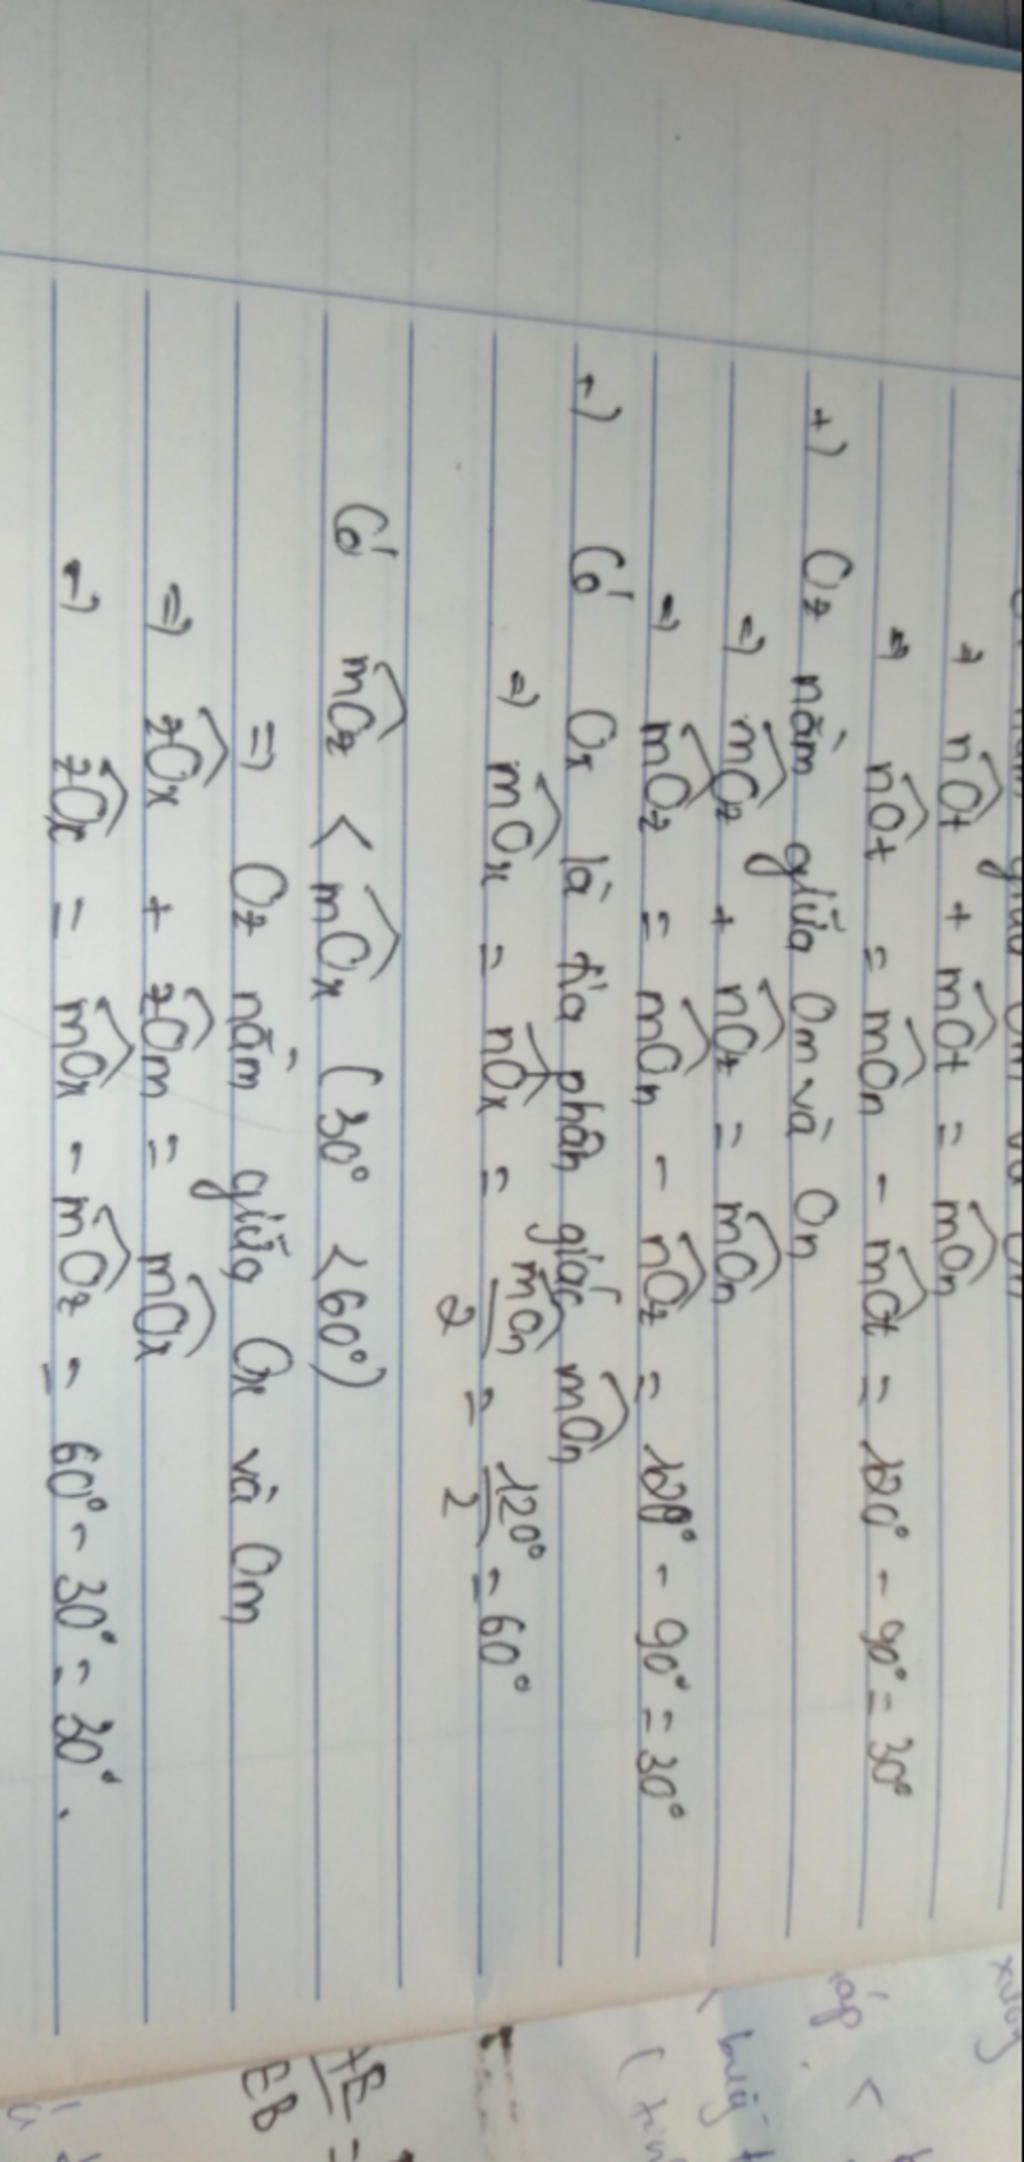 ⇒ n̂Ot + m̂Ot = m̂On
⇒ n̂Ot = m̂On - m̂Ot = 120° - 90° = 30°
+) Oz nằm giữa Om và On
⇒ m̂Oz + n̂Oz = m̂On
⇒ m̂Oz = m̂On - n̂Oz = 120° - 90° = 30°
+) Có Ox là tia phân giác m̂On
⇒ m̂Ox = n̂Ox = m̂On/2 = 120°/2 = 60°
Có m̂Oz < m̂Ox (30° < 60°)
⇒ Oz nằm giữa Ox và Om
⇒ ẑOx + ẑOm = m̂Ox
⇒ ẑOx = m̂Ox - m̂Oz = 60° - 30° = 30°.
EB